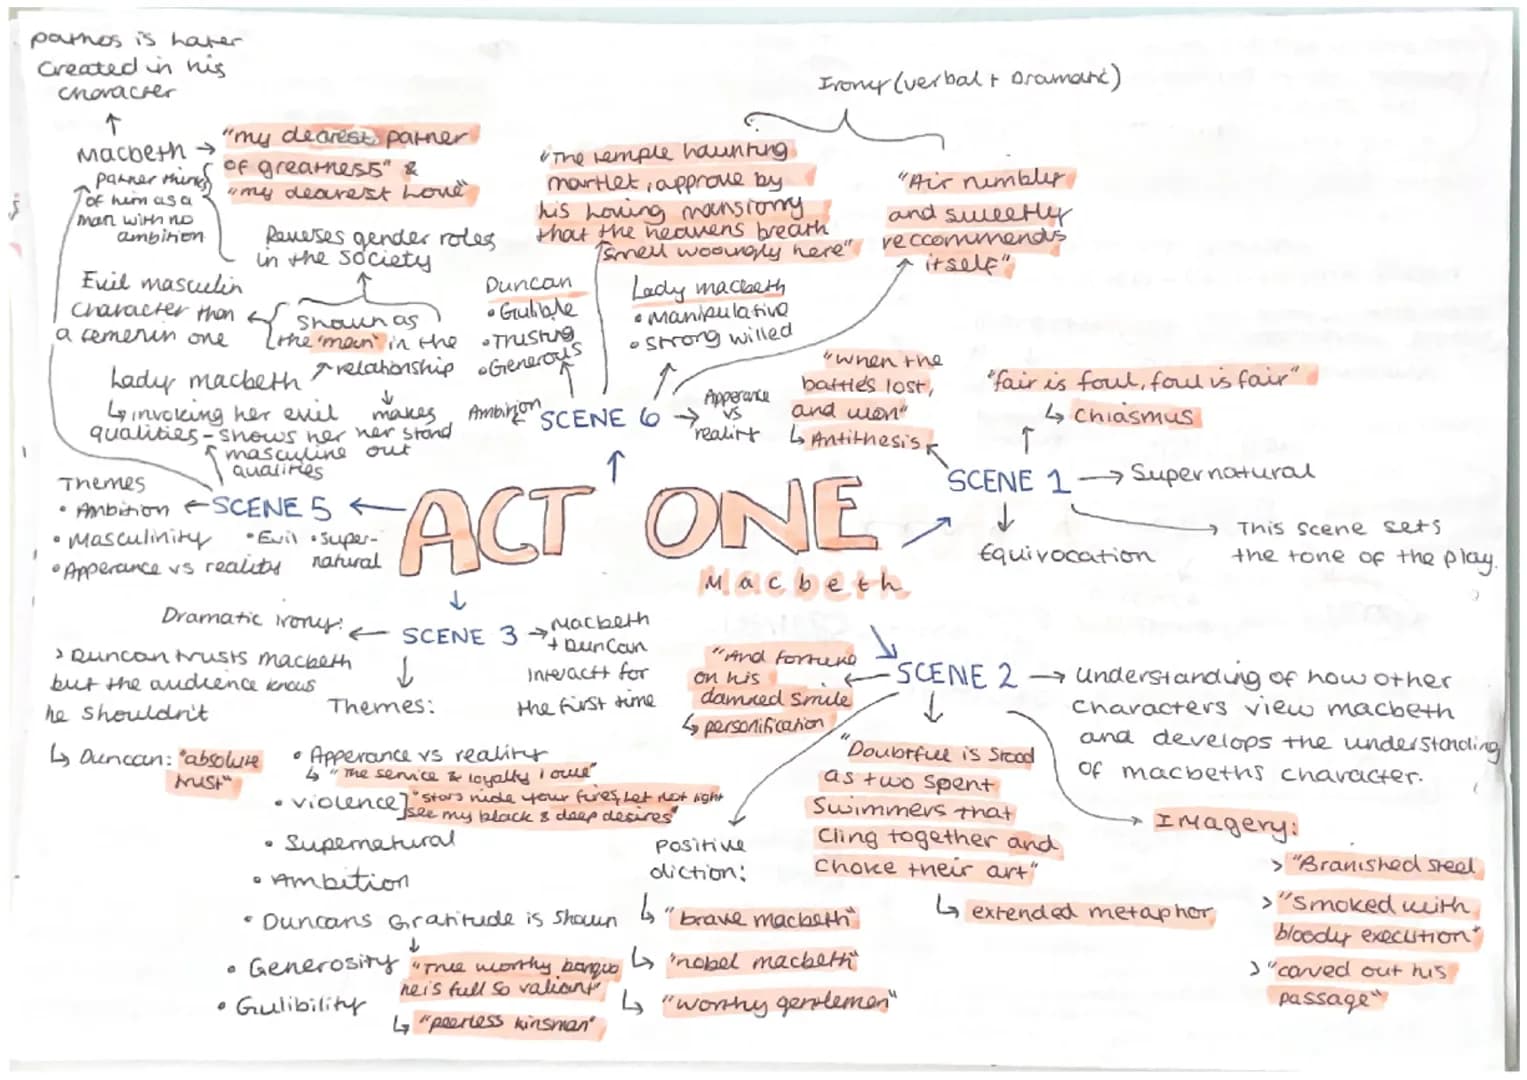 ACT ONE
Macbeth
SCENE 1
"fair is foul, foul is fair"
↳ chiasmus
"when the
battles lost,
and won"
↳ Antithesis
→ Supernatural
Equivocation
This scene sets
the tone of the play.
SCENE 2
→ understanding of how other
characters view macbeth
and develops the understanding
of macbeths character.
"And fortune
on his
damned smile
↳ personification
"Doubtful is stood
as two spent
swimmers that
cling together and
choke their art"
↳ extended metaphor
Imagery:
> "Branished steel
> "smoked with
bloody execution"
> "carved out his
passage"
Positive
diction:
↳ "brave macbeth"
↳ "nobel macbeth"
↳ "worthy gentlemen"
SCENE 3
→ Macbeth
+ Duncan
interactt for
the first time
Dramatic irony:
> Duncan trusts macbeth
but the audience knows
he shouldn't
↳ Duncan: "absolute
trust"
Themes:
• Apperance vs reality
↳ "The service & loyalty I owe"
• violence] "stars hide your fires, let not light
see my black & deep desires"
• Supernatural
• Ambition
• Duncans Gratitude is shown
• Generosity
"True worthy banquo
he is full so valiant"
↳ "peerless kinsman"
• Gulibility
SCENE 5
Themes
• Ambition
• Masculinity
• Evil • Super-
natural
• Apperance vs reality
Lady macbeth
↳ invoking her evil
qualities - shows her
masculine
qualities
makes
her stand
out
shown as
the 'man' in the
relationship
Reverses gender roles
in the society
Evil masculin
character than
a femenin one
Macbeth →
"my dearest partner
of greatness" &
"my dearest love"
partner thinks
of him as a
man with no
ambition
pathos is later
created in his
character
SCENE 6
Ambition
Duncan
• Gulible
• Trusting
• Generous
Lady macbeth
• manipulative
• strong willed
Apperance
vs
reality
Irony (verbal + Dramatic)
"The temple haunting
martlet, approve by
his loving mansionry
that the heavens breath
smell wooingly here"
"Air nimbly
and sweetly
reccommends
itself"